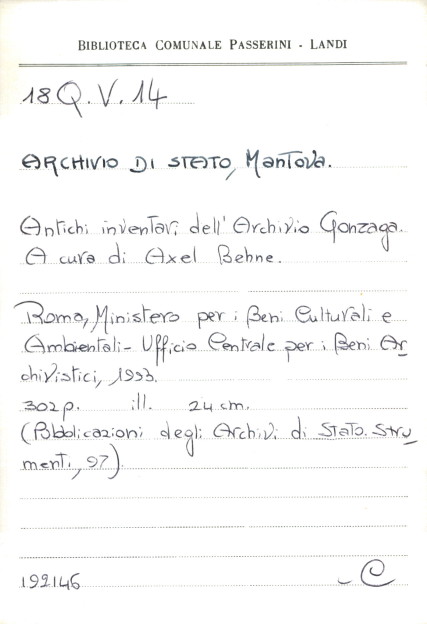 BIBLIOTECA COMUNALE PASSERINI - LANDI
18 Q.V.14
ARCHIVIO DI STATO, Mantova.
Antichi inventari dell'Archivio Gonzaga.
A cura di Axel Behne.
Roma, Ministero per i Beni Culturali e
Ambientali - Ufficio Centrale per i Beni Ar
chivistici, 1993.
302 p. ill. 24 cm.
(Pubblicazioni degli Archivi di Stato. Stru_
menti, 97)
192146
C